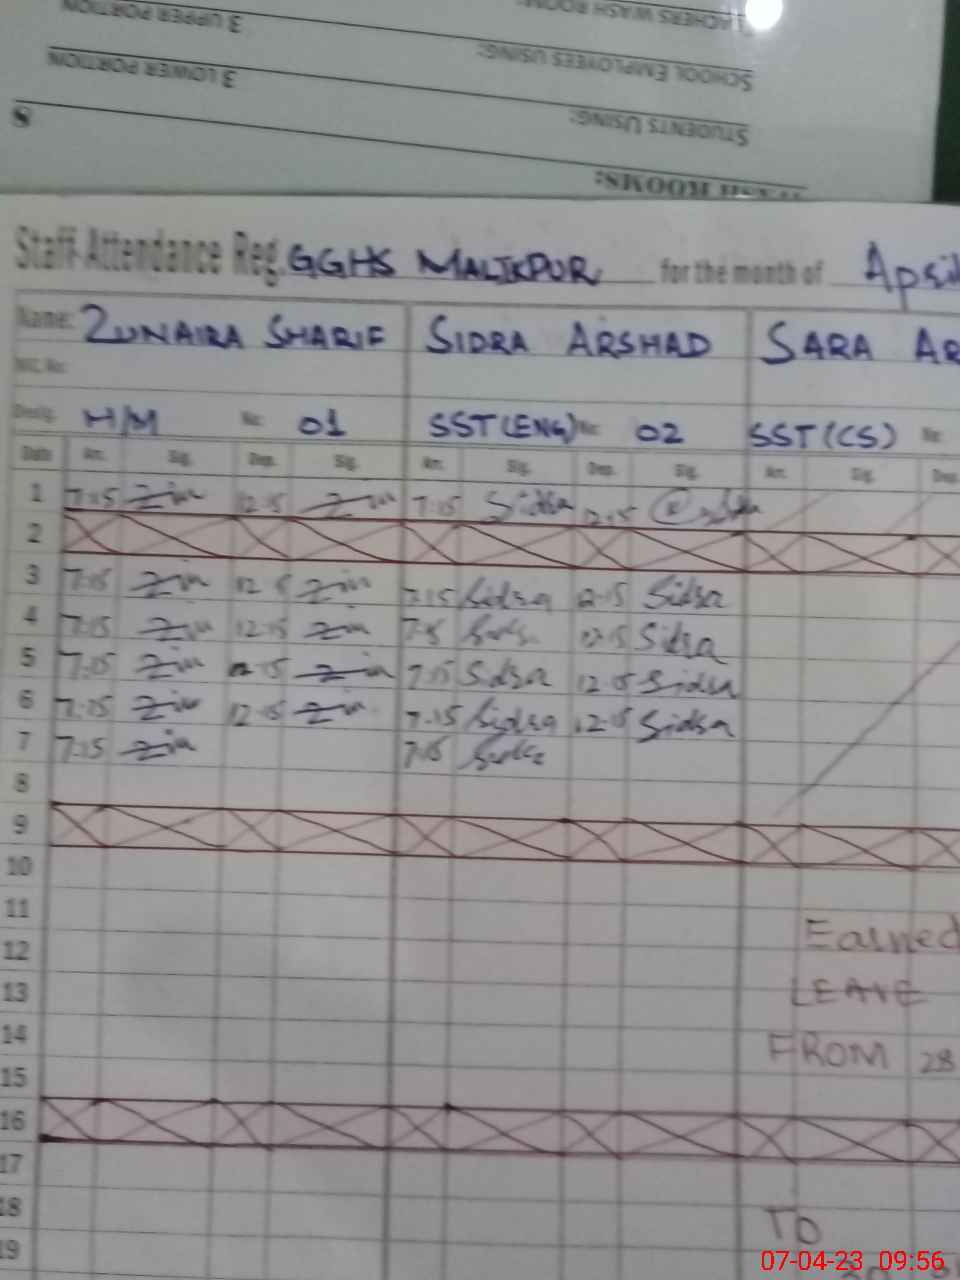 3 UPPER PORTION
WASH ROOM:
SCHOOL EMPLOYEES USING:
3 LOWER PORTION
STUDENTS USING:
8
WASH ROOMS:
Staff Attendance Reg. GGHS MALIKPUR for the month of April
Name: ZUNAIRA SHARIF SIDRA ARSHAD SARA AR
NIC No:
Desig. H/M No: 01 SST(ENG) No: 02 SST (CS) No:
Date Arr. Sig. Dep. Sig. Arr. Sig. Dep. Sig. Arr. Sig. Dep.
1 7:15 12:15 7:15 Sidra 12:15
2
3 7:15 12:15 7:15 Sidra 12:15 Sidra
4 7:15 12:15 12:15 Sidra
5 7:15 12:15 7:15 Sidra 12:15 Sidra
6 7:15 12:15 7:15 Sidra 12:15 Sidra
7 7:15 7:15
8
9
10
11
12 Earned
13 LEAVE
14 FROM 28
15
16
17
18 TO
19
07-04-23 09:56